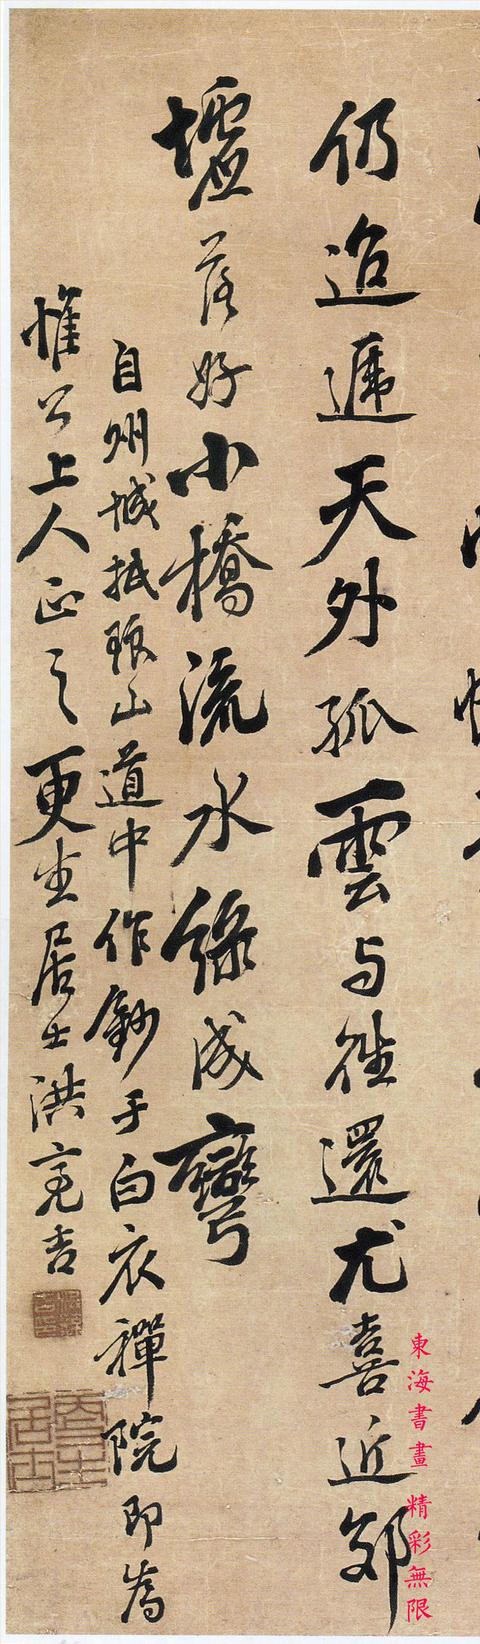 仍迢遞天外孤雲与往還尤喜近郊
墟落好小橋流水綠成彎
自州城抵琅山道中作鈔于白衣禪院即為
惟公上人正之更生居士洪亮吉
東海書畫 精彩無限